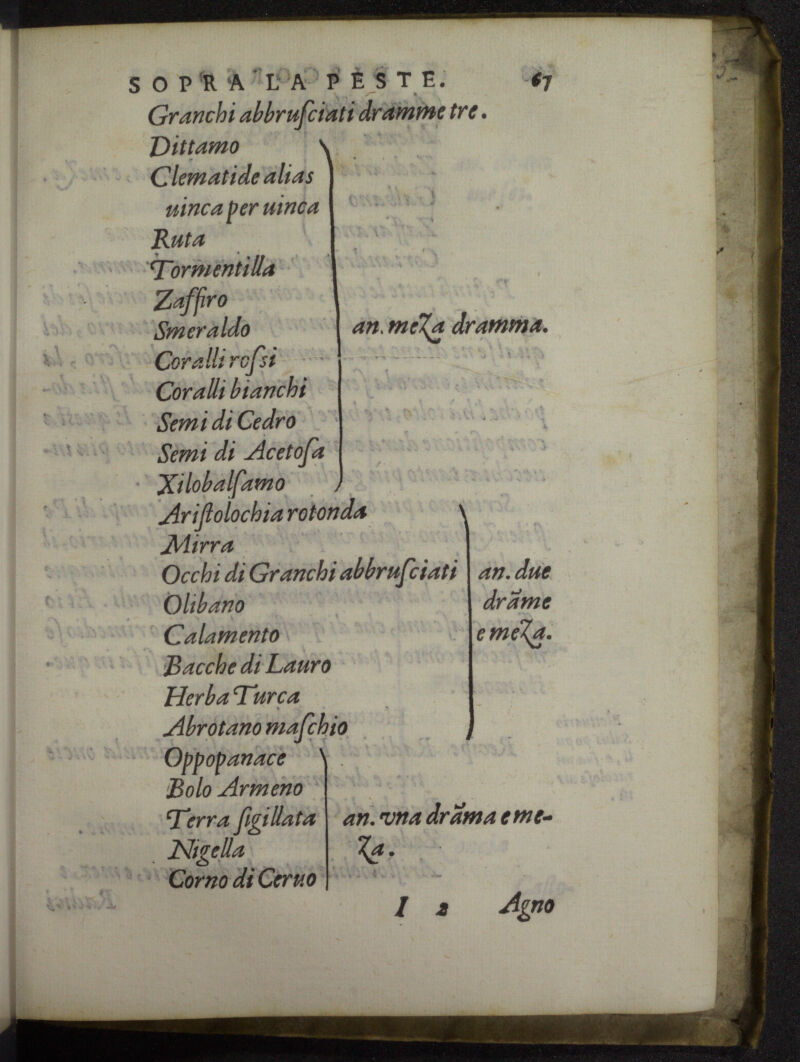 SOPRA LA PESTE. 67
Granchi abbruſciati dramme tre.
Dittamo
Clematide alias
uinca per uinca
Ruta
Tormentilla
Zaffiro
Smeraldo an. meza dramma.
Coralli roſsi
Coralli bianchi
Semi di Cedro
Semi di Acetoſa
Xilobalſamo
Ariſtolochia rotonda
Mirra
Occhi di Granchi abbruſciati an. due
Olibano drãme
Calamento e meza.
Bacche di Lauro
Herba Turca
Abrotano maſchio
Oppopanace
Bolo Armeno
Terra ſigillata an. vna drãma e me-
Nigella za.
Corno di Ceruo
I 2 Agno